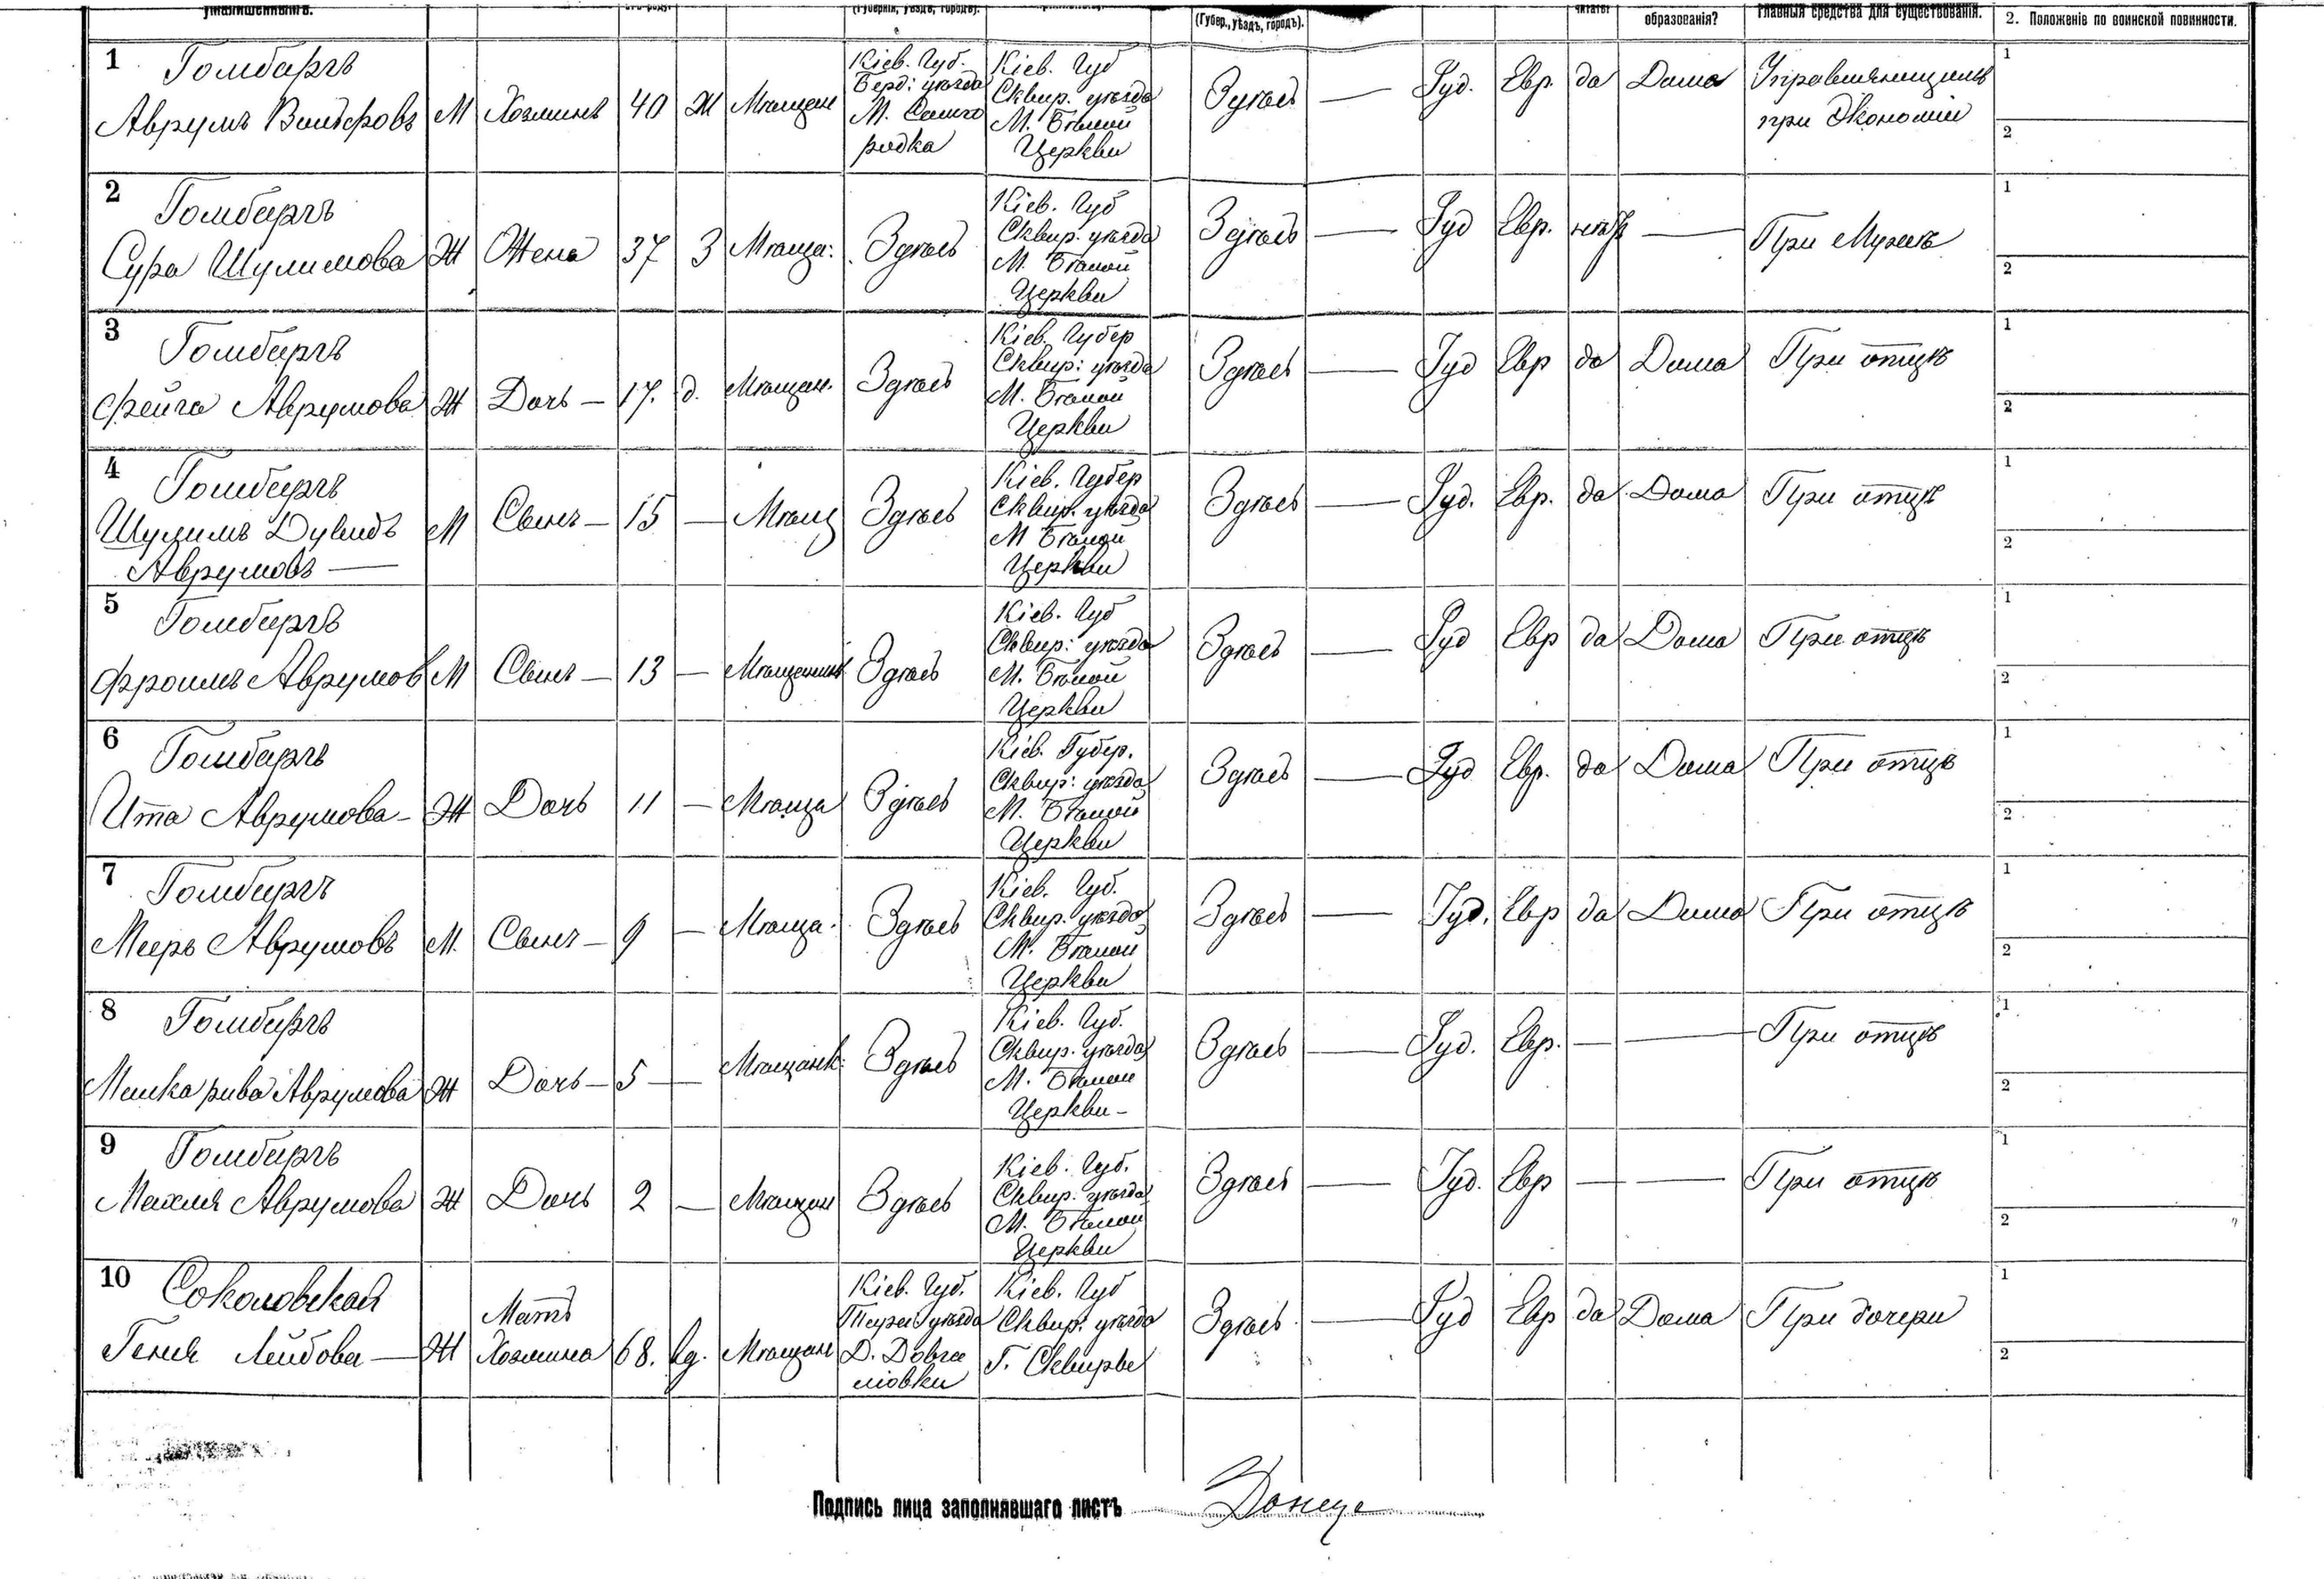 умалишеннымъ.
(Губернія, уѣздъ, городъ).
(Губер., уѣздъ, городъ).
читать?
образованія?
главныя средства для существованія.
2. Положеніе по воинской повинности.
1 Гомбаргъ Кіев. Губ. Кіев. Губ 1
Берд: уѣзда Сквир. уѣзда
Аврумъ М Хозяинъ 40 Ж Мѣщан М. М. Бѣлой Здѣсь — Іуд. Евр. да Дома при Экономіи 2
родка Церкви
2 Гомбаргъ Кіев. Губ 1
Сквир. уѣзда
Сура Шулимова Ж Жена 37 З Мѣща: Здѣсь М. Бѣлой Здѣсь — Іуд Евр. нѣтъ — При Мужѣ 2
Церкви
3 Гомбаргъ Кіев. Губер 1
Сквир: уѣзда
Фейга Аврумова Ж Дочь — 17. д. Мѣщан. Здѣсь М. Бѣлой Здѣсь — Іуд Евр да Дома При отцѣ 2
Церкви
4 Гомбаргъ Кіев. Губер 1
Шулимъ Дувидъ М Сынъ — 15 — Мѣщ Здѣсь Сквир. уѣзда Здѣсь — Іуд. Евр. да Дома При отцѣ
М Бѣлой 2
Аврумовъ — Церкви
5 Гомбаргъ Кіев. Губ 1
Сквир: уѣзда
Фроимъ Аврумов М Сынъ — 13 — Мѣщанинъ Здѣсь М. Бѣлой Здѣсь — Іуд Евр да Дома При отцѣ 2
Церкви
6 Гомбаргъ Кіев. Губер. 1
Сквир: уѣзда
Ита Аврумова — Ж Дочь 11 — Мѣща Здѣсь М. Бѣлой Здѣсь — Іуд Евр. да Дома При отцѣ 2
Церкви
7 Гомбаргъ Кіев. Губ. 1
Сквир. уѣзда
Мееръ Аврумовъ М. Сынъ — 9 — Мѣща. Здѣсь М. Бѣлой Здѣсь — Іуд. Евр да Дома При отцѣ 2
Церкви
8 Гомбаргъ Кіев. Губ. 1
Сквир. уѣзда
рива Аврумова Ж Дочь — 5 — Мѣщанк. Здѣсь М. Бѣлой Здѣсь — Іуд. Евр. — — При отцѣ 2
Церкви —
9 Гомбаргъ Кіев. Губ. 1
Сквир. уѣзда
Махля Аврумова Ж Дочь 2 — Мѣщан Здѣсь М. Бѣлой Здѣсь — Іуд. Евр — — При отцѣ 2
Церкви
10 Соколовская Кіев. Губ. Кіев. Губ 1
Мать уѣзда Сквир. уѣзда
Геня Лейбова — Ж Хозяина 68. вд. Мѣщан Д. Г. Сквиры Здѣсь — Іуд Евр да Дома При дочери 2
Подпись лица заполнявшаго листъ